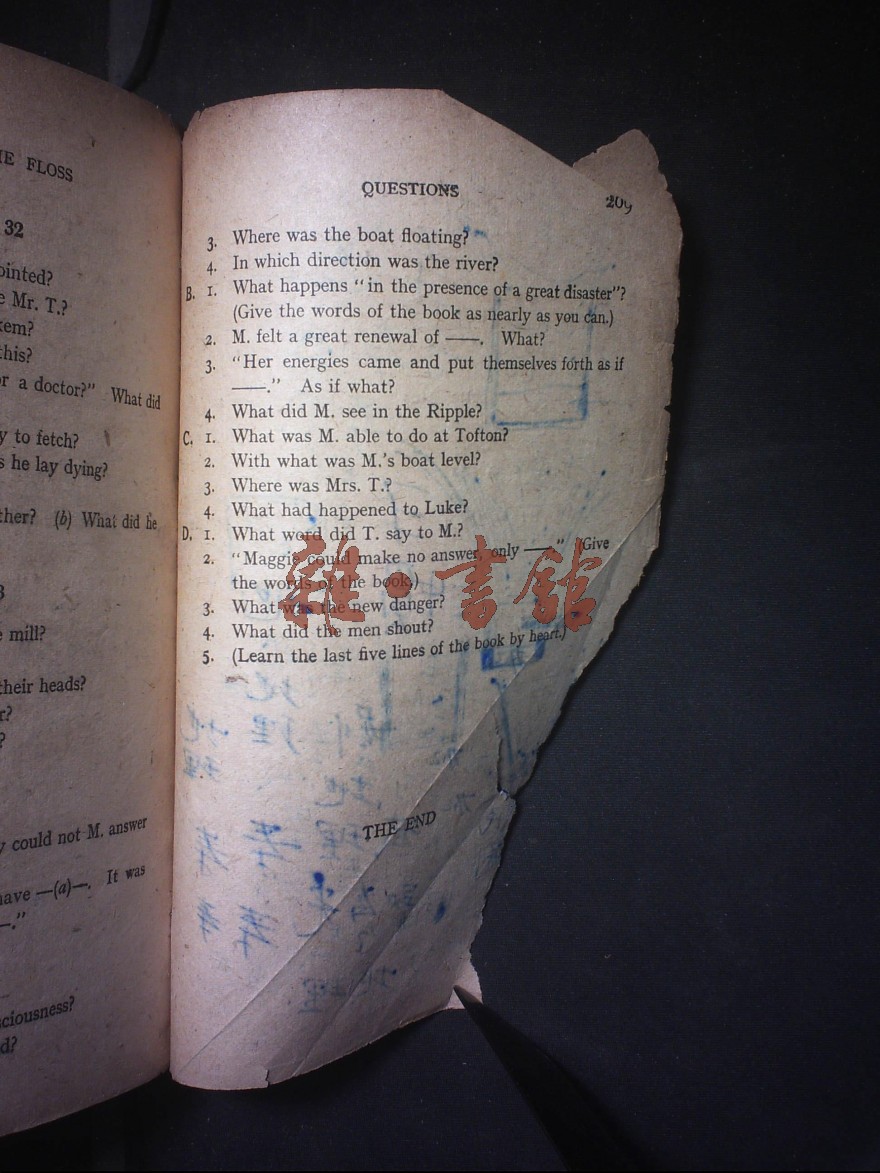 E FLOSS
32
ointed?
e Mr. T.?
kem?
this?
r a doctor?" What did
y to fetch?
s he lay dying?
ther? (b) What did he
3
e mill?
their heads?
r?
?
y could not M. answer
have —(a)—. It was
—."
sciousness?
d?
QUESTIONS
209
3. Where was the boat floating?
4. In which direction was the river?
B. 1. What happens "in the presence of a great disaster"?
(Give the words of the book as nearly as you can.)
2. M. felt a great renewal of ——. What?
3. "Her energies came and put themselves forth as if
——." As if what?
4. What did M. see in the Ripple?
C. 1. What was M. able to do at Tofton?
2. With what was M.'s boat level?
3. Where was Mrs. T.?
4. What had happened to Luke?
D. 1. What word did T. say to M.?
2. "Maggie could make no answer, only ——" (Give
the words of the book.)
3. What was the new danger?
4. What did the men shout?
5. (Learn the last five lines of the book by heart.)
THE END
雜·書館